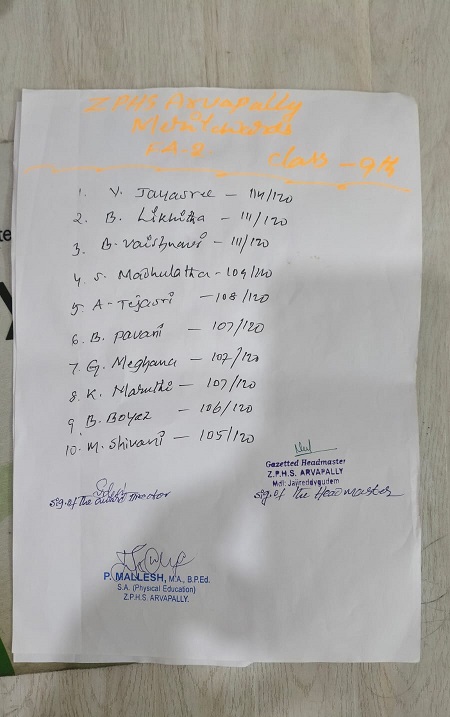 ZPHS Arvapally
FA-2
class - 9th
1. V. Jayasree - 114/120
2. B. Likhitha - 111/120
3. B. Vaishnavi - 111/120
4. S. Madhulatha - 109/120
5. A - Tejasri - 108/120
6. B. Pavani - 107/120
7. G. Meghana - 107/120
8. K. Maruthi - 107/120
9 B. - 106/120
10. M. Shivani - 105/120
Gazetted Headmaster
Z.P.H.S. ARVAPALLY
Mdl: Jajireddygudem
Sig. of The Headmaster
Sig. of The Director
P. MALLESH, M.A., B.P.Ed.
S.A. (Physical Education)
Z.P.H.S. ARVAPALLY.